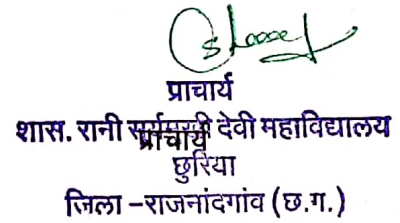 प्राचार्य
शास. रानी सूर्यमुखी देवी महाविद्यालय
प्राचार्य
छुरिया
जिला –राजनांदगांव (छ.ग.)